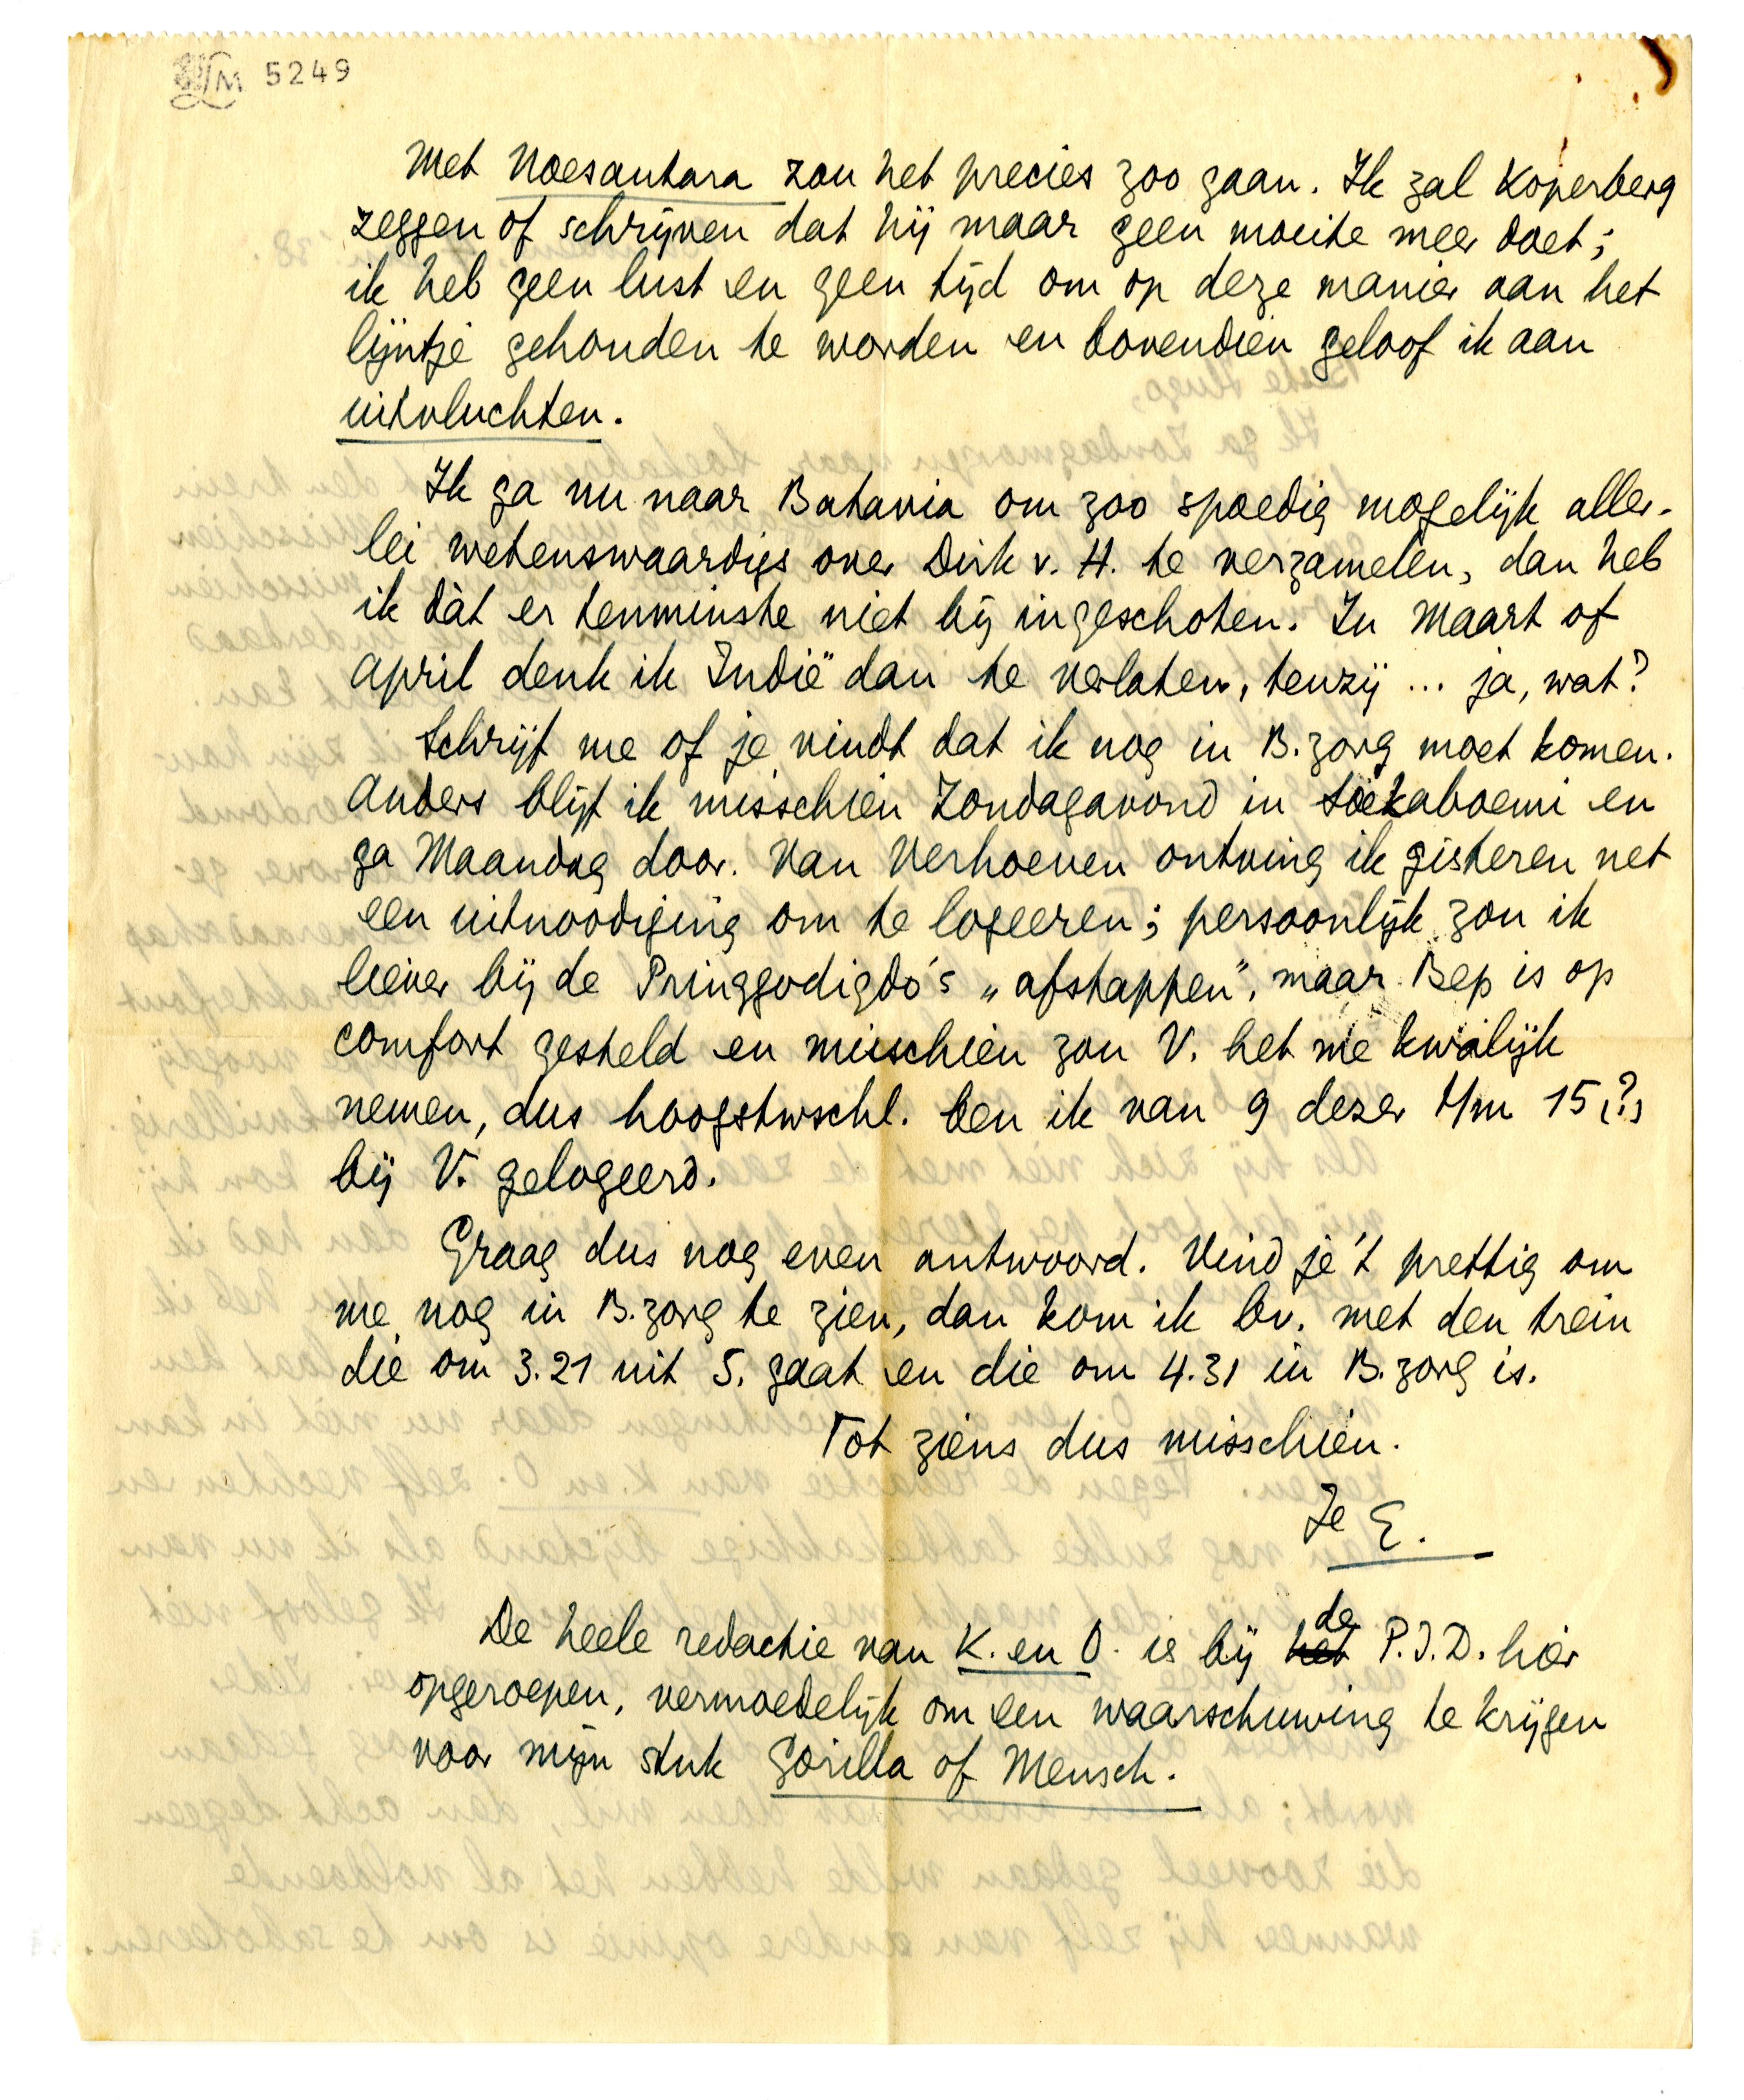 LM 5249
Met Noesantara zou het precies zoo gaan. Ik zal Koperberg
zeggen of schrijven dat hij maar geen moeite meer doet;
ik heb geen lust en geen tijd om op deze manier aan het
lijntje gehouden te worden en bovendien geloof ik aan
uitvluchten.
Ik ga nu naar Batavia om zoo spoedig mogelijk aller-
lei wetenswaardigs over Dirk v. H. te verzamelen, dan heb
ik dàt er tenminste niet bij ingeschoten. In Maart of
April denk ik Indië dan te verlaten, tenzij ... ja, wat?
Schrijf me of je vindt dat ik nog in B.zorg moet komen.
Anders blijf ik misschien Zondagavond in Soekaboemi en
ga Maandag door. Van Verhoeven ontving ik gisteren net
een uitnoodiging om te logeeren; persoonlijk zou ik
liever bij de Pringgodigdo's „afstappen", maar Bep is op
comfort gesteld en misschien zou V. het me kwalijk
nemen, dus hoogstwschl. ben ik van 9 dezer t/m 15 (?)
bij V. gelogeerd.
Graag dus nog even antwoord. Vind je 't prettig om
me nog in B.zorg te zien, dan kom ik bv. met den trein
die om 3.21 uit S. gaat en die om 4.31 in B.zorg is.
Tot ziens dus misschien.
Je E.
De heele redactie van K. en O. is bij het de P.I.D. hier
opgeroepen, vermoedelijk om een waarschuwing te krijgen
voor mijn stuk Gorilla of Mensch.